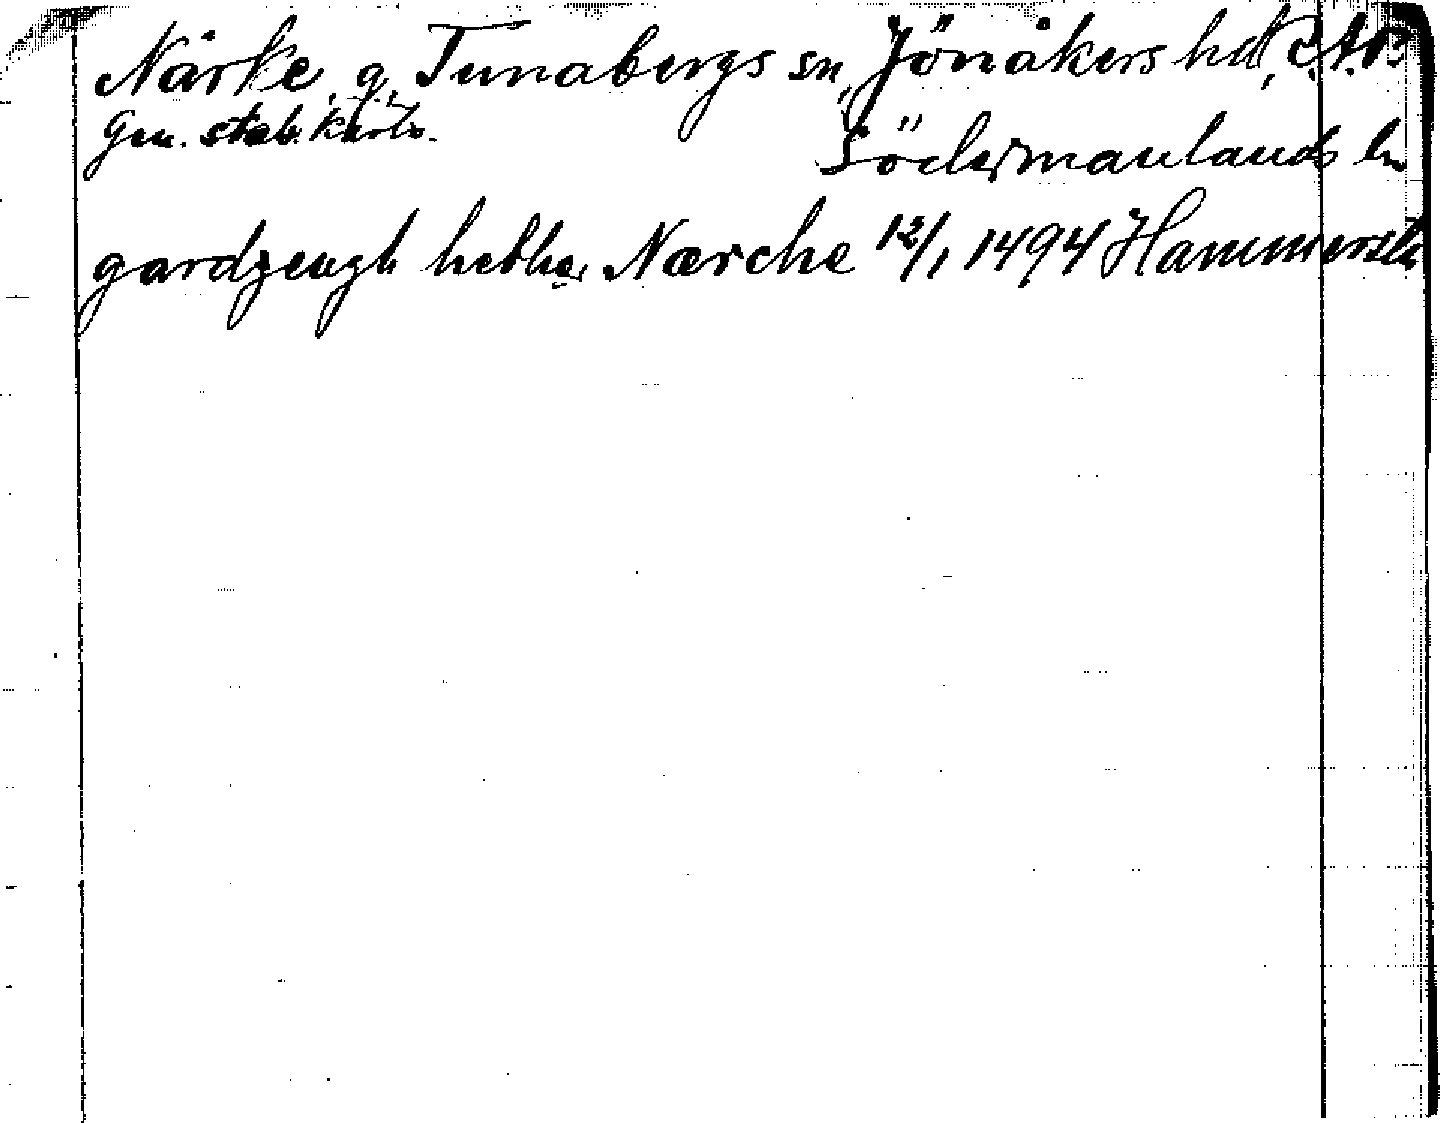 Närke, g, Tunabergs sn, Jönåkers hd,
Gen. stab. Karta.
Södermanlands ln
gardzengh hethe Nærche 12/1 1494 Hammersta